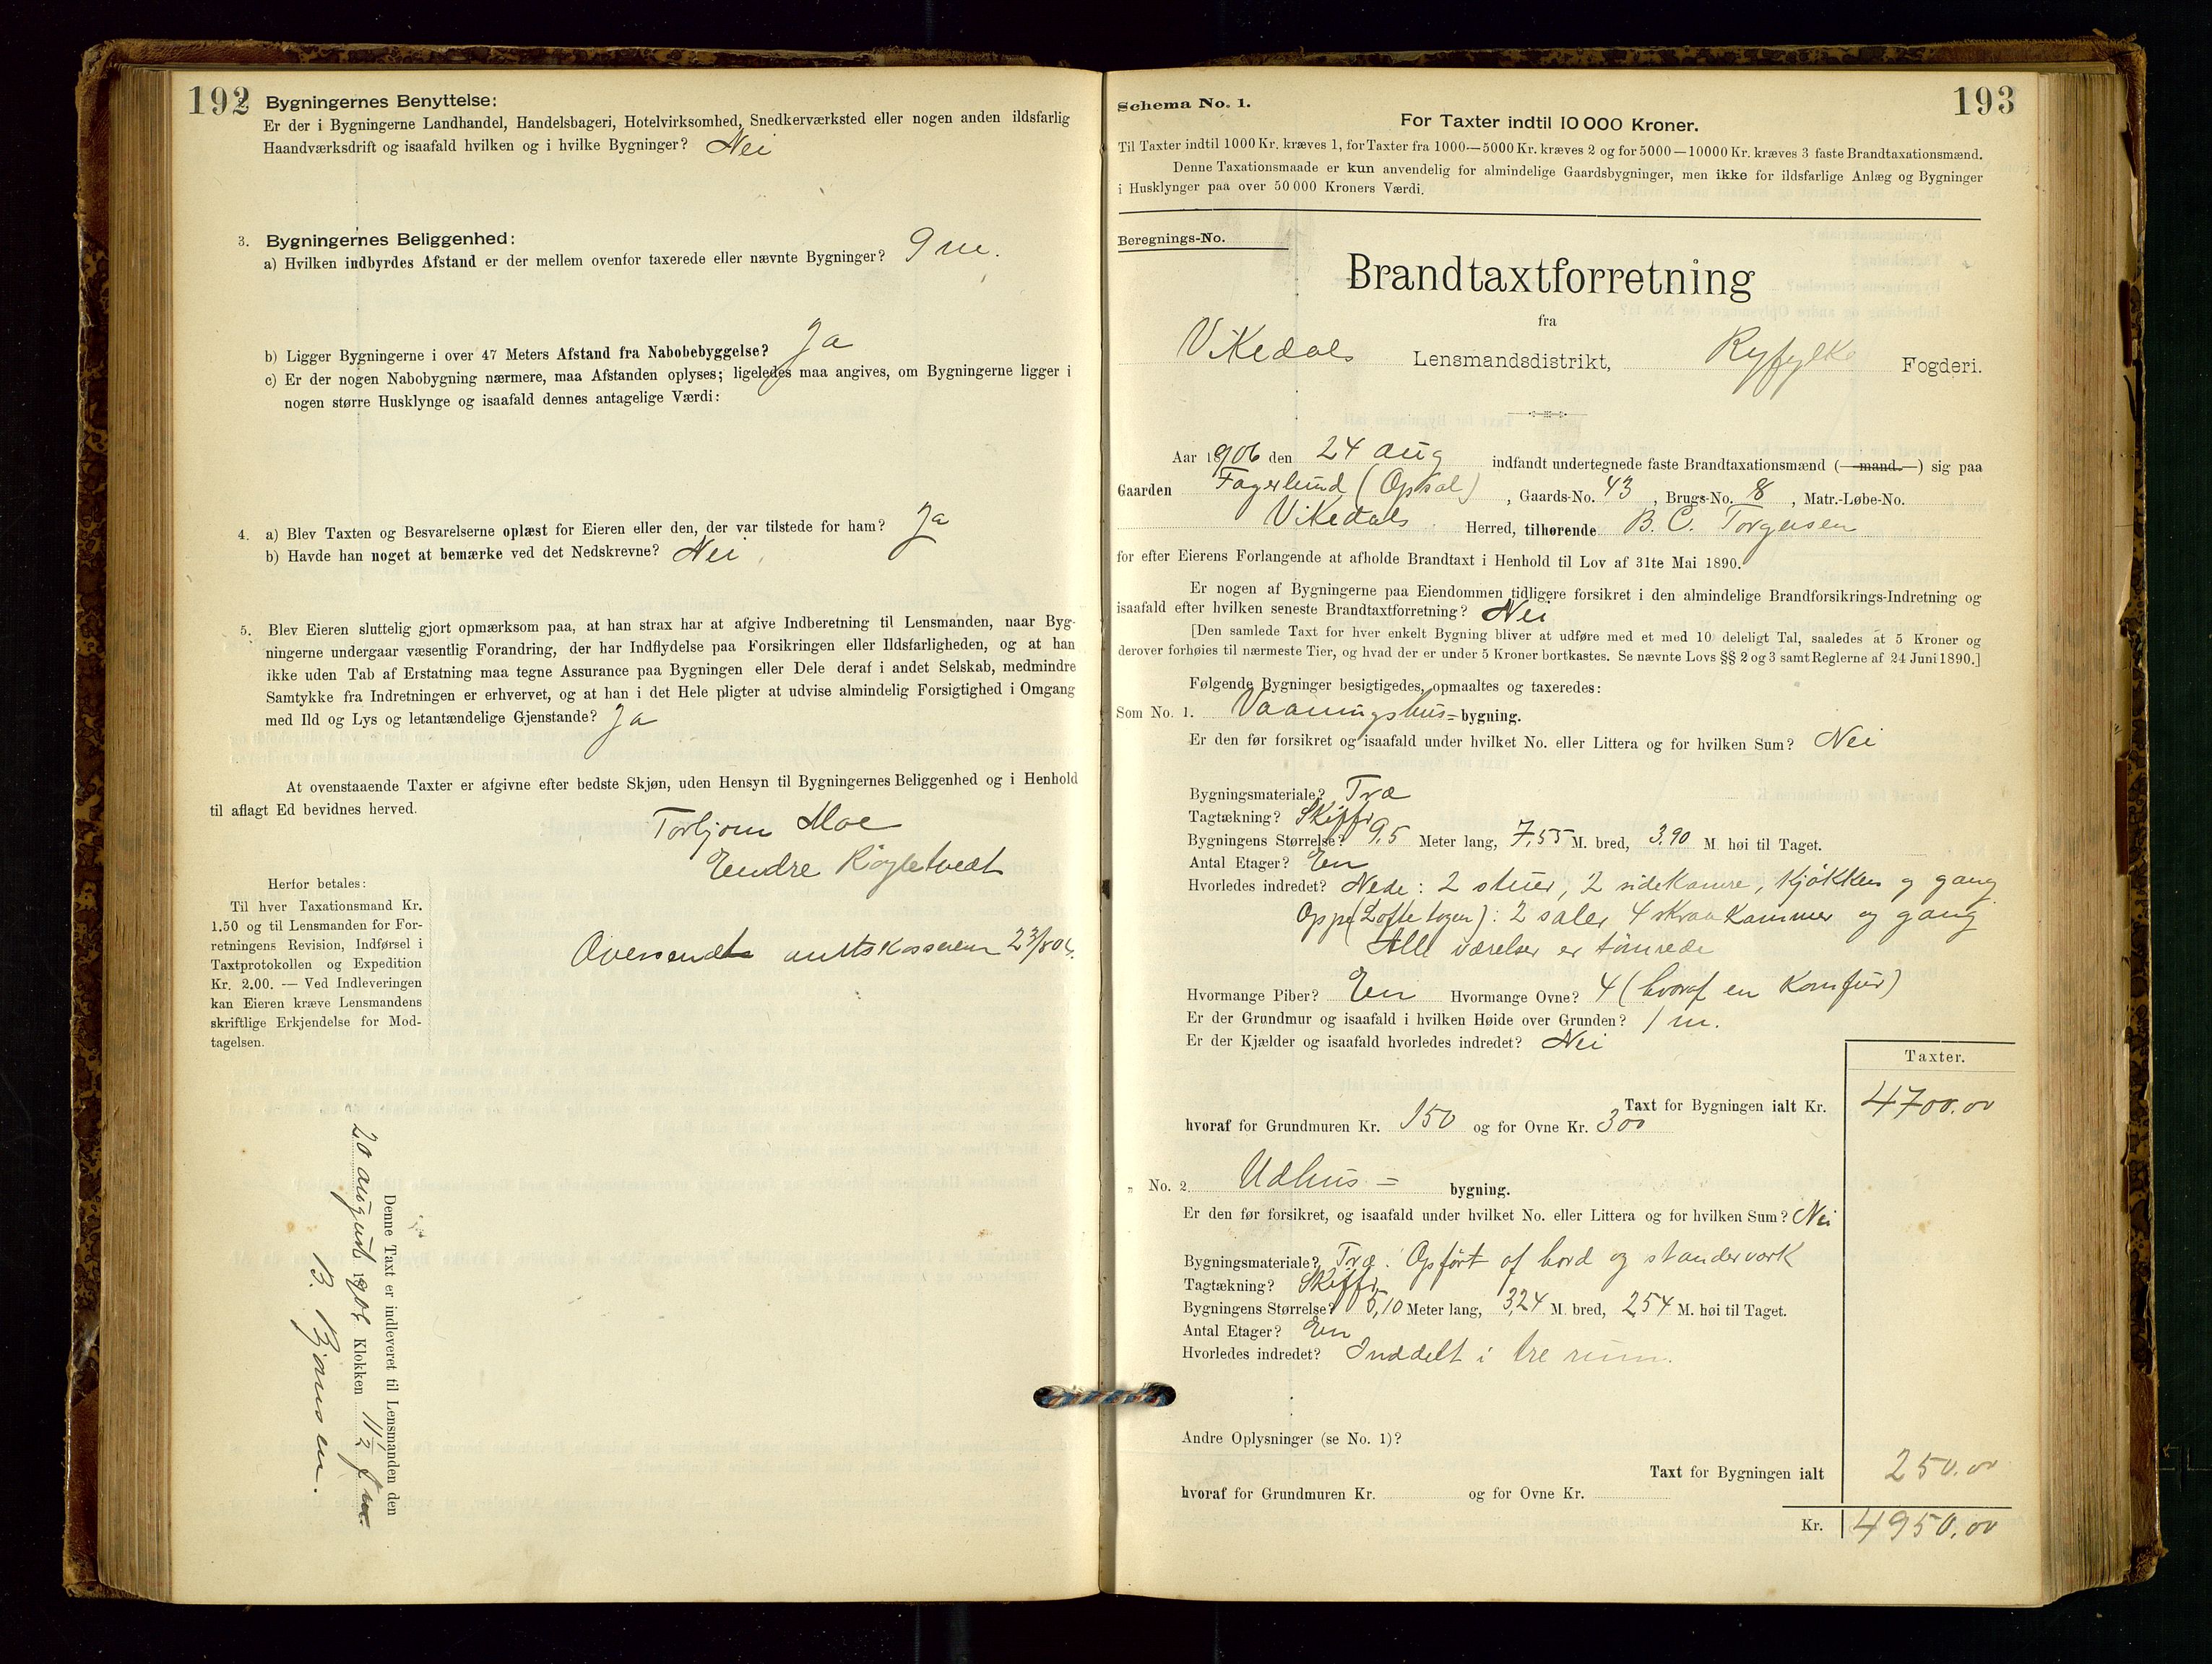 192
Bygningernes Benyttelse:
Er der i Bygningerne Landhandel, Handelsbageri, Hotelvirksomhed, Snedkerværksted eller nogen anden ildsfarlig
Haandværksdrift og isaafald hvilken og i hvilke Bygninger? Nei
3. Bygningernes Beliggenhed:
a) Hvilken indbyrdes Afstand er der mellem ovenfor taxerede eller nævnte Bygninger? 9 m.
b) Ligger Bygningerne i over 47 Meters Afstand fra Nabobebyggelse? Ja
c) Er der nogen Nabobygning nærmere, maa Afstanden oplyses; ligeledes maa angives, om Bygningerne ligger i
nogen større Husklynge og isaafald dennes antagelige Værdi:
4. a) Blev Taxten og Besvarelserne oplæst for Eieren eller den, der var tilstede for ham? Ja
b) Havde han noget at bemærke ved det Nedskrevne? Nei
5. Blev Eieren sluttelig gjort opmærksom paa, at han strax har at afgive Indberetning til Lensmanden, naar Byg-
ningerne undergaar væsentlig Forandring, der har Indflydelse paa Forsikringen eller Ildsfarligheden, og at han
ikke uden Tab af Erstatning maa tegne Assurance paa Bygningen eller Dele deraf i andet Selskab, medmindre
Samtykke fra Indretningen er erhvervet, og at han i det Hele pligter at udvise almindelig Forsigtighed i Omgang
med Ild og Lys og letantændelige Gjenstande? Ja
At ovenstaaende Taxter er afgivne efter bedste Skjøn, uden Hensyn til Bygningernes Beliggenhed og i Henhold
til aflagt Ed bevidnes herved.
Torbjørn Moe
Endre
Herfor betales:
Til hver Taxationsmand Kr.
1.50 og til Lensmanden for For-
retningens Revision, Indførsel i
Taxtprotokollen og Expedition
Kr. 2.00. — Ved Indleveringen
kan Eieren kræve Lensmandens
skriftlige Erkjendelse for Mod-
tagelsen.
Oversendt amtskassereren
Denne Taxt er indleveret til Lensmanden den
20 august 1906 Klokken 11½ fm
B. Bjønsen.
193
Schema No. 1.
For Taxter indtil 10 000 Kroner.
Til Taxter indtil 1000 Kr. kræves 1, for Taxter fra 1000—5000 Kr. kræves 2 og for 5000—10000 Kr. kræves 3 faste Brandtaxationsmænd.
Denne Taxationsmaade er kun anvendelig for almindelige Gaardsbygninger, men ikke for ildsfarlige Anlæg og Bygninger
i Husklynger paa over 50 000 Kroners Værdi.
Beregnings-No.
Brandtaxtforretning
fra
Vikedals Lensmandsdistrikt, Ryfylke Fogderi.
Aar 1906 den 24 aug indfandt undertegnede faste Brandtaxationsmænd (—mand.—) sig paa
Gaarden Fagerlund (Opsal), Gaards-No. 43, Brugs-No. 8, Matr.-Løbe-No.
Vikedals Herred, tilhørende B. C. Torgersen
for efter Eierens Forlangende at afholde Brandtaxt i Henhold til Lov af 31te Mai 1890.
Er nogen af Bygningerne paa Eiendommen tidligere forsikret i den almindelige Brandforsikrings-Indretning og
isaafald efter hvilken seneste Brandtaxtforretning? Nei
[Den samlede Taxt for hver enkelt Bygning bliver at udføre med et med 10 deleligt Tal, saaledes at 5 Kroner og
derover forhøies til nærmeste Tier, og hvad der er under 5 Kroner bortkastes. Se nævnte Lovs §§ 2 og 3 samt Reglerne af 24 Juni 1890.]
Følgende Bygninger besigtigedes, opmaaltes og taxeredes:
Som No. 1. Vaaningshus=bygning.
Er den før forsikret og isaafald under hvilket No. eller Littera og for hvilken Sum? Nei
Bygningsmateriale? Træ
Tagtækning? Skiffr
Bygningens Størrelse? 9,5 Meter lang, 7,55 M. bred, 3,90 M. høi til Taget.
Antal Etager? En
Hvorledes indredet? Nede: 2 stuer, 2 sidekamre, kjøkken og gang
Oppe (Loftetagen): 2 saler 4 skraakammer og gang
Alle værelser er tømrede
Hvormange Piber? En Hvormange Ovne? 4 (hvoraf en Komfur)
Er der Grundmur og isaafald i hvilken Høide over Grunden? 1 m.
Er der Kjælder og isaafald hvorledes indredet? Nei
Taxter.
Taxt for Bygningen ialt Kr. 4700.00
hvoraf for Grundmuren Kr. 150 og for Ovne Kr. 300
„ No. 2. Udhus = bygning.
Er den før forsikret, og isaafald under hvilket No. eller Littera og for hvilken Sum? Nei
Bygningsmateriale? Træ. Opført af bord og standerværk
Tagtækning? Skiffr
Bygningens Størrelse? 5,10 Meter lang, 3,24 M. bred, 254 M. høi til Taget.
Antal Etager? En
Hvorledes indredet? Inddelt i tre rum.
Andre Oplysninger (se No. 1)?
Taxt for Bygningen ialt 250.00
hvoraf for Grundmuren Kr. og for Ovne Kr.
Kr. 4950.00